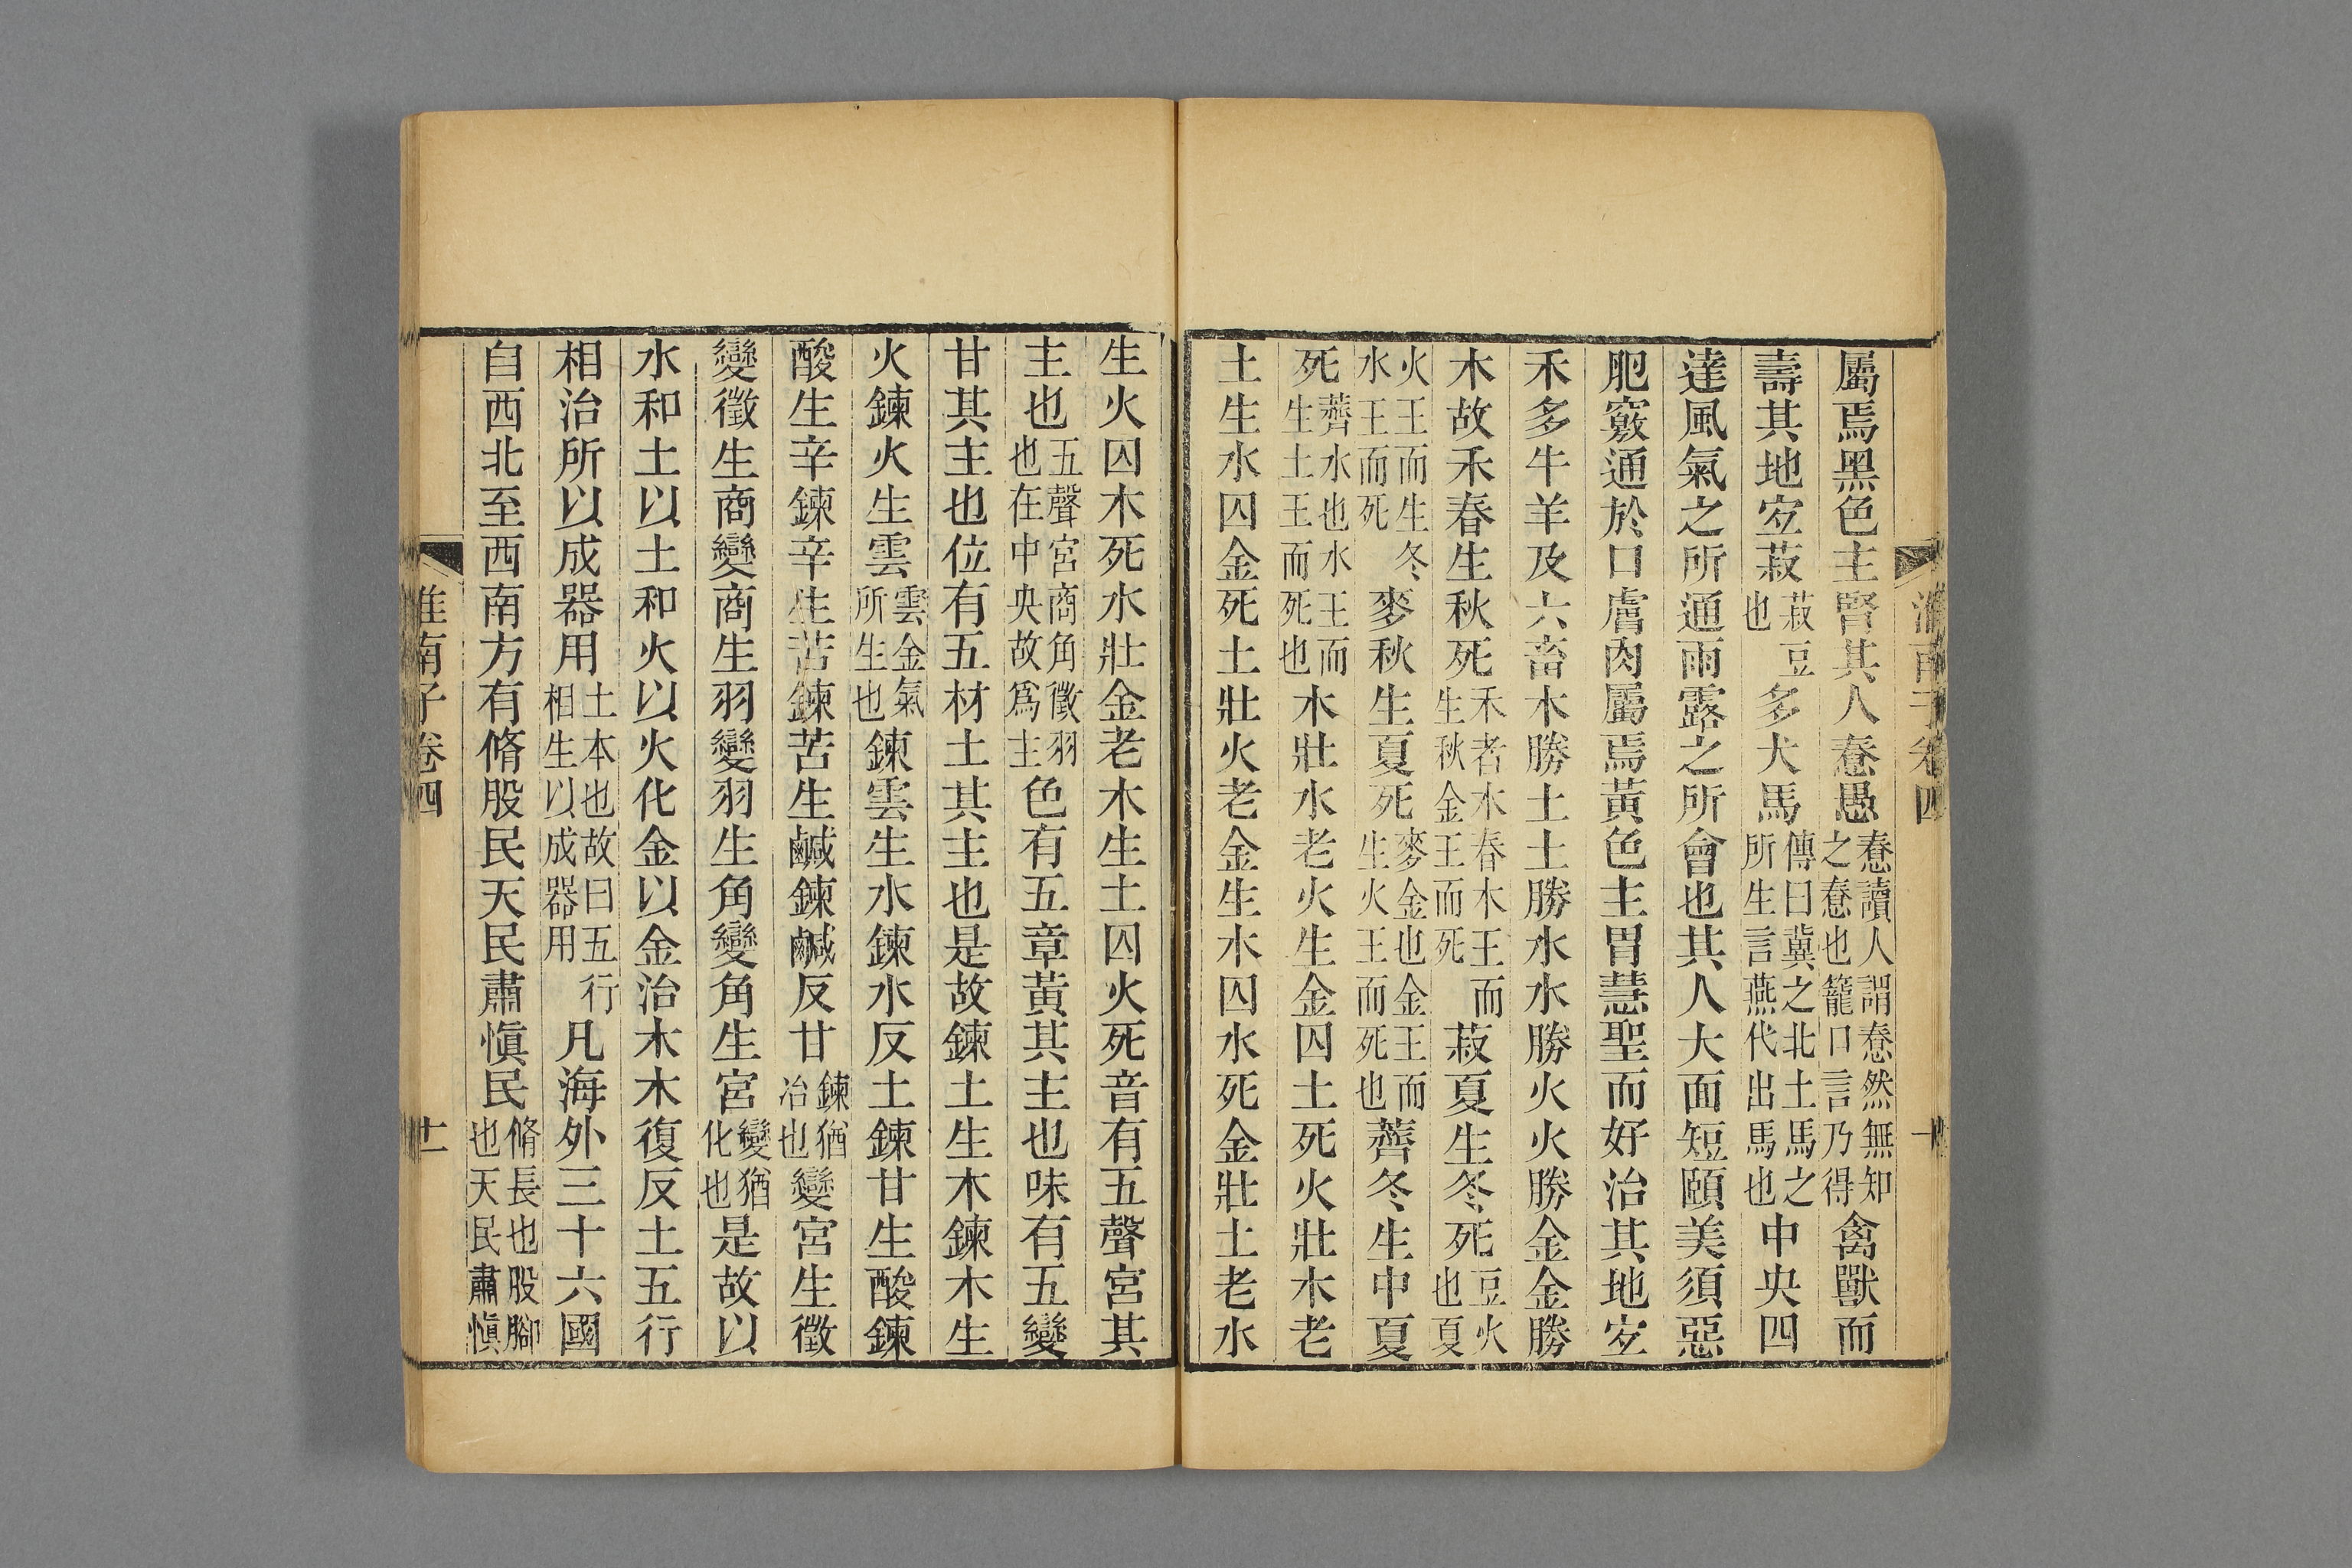 屬焉黑色主腎其人惷愚惷讀人謂惷然無知之惷也籠口言乃得禽獸而
壽其地宐菽菽豆也多犬馬傳曰冀之北土馬之所生言燕代出馬也中央四
達風氣之所通雨露之所會也其人大面短頤美須惡
肥竅通於口膚肉屬焉黃色主胃慧聖而好治其地宐
禾多牛羊及六畜木勝土土勝水水勝火火勝金金勝
木故禾春生秋死禾者木春木王而生秋金王而死菽夏生冬死豆火也夏
火王而生冬水王而死麥秋生夏死麥金也金王而生火王而死也薺冬生中夏
死薺水也水王而生土王而死也木壯水老火生金囚土死火壯木老
土生水囚金死土壯火老金生木囚水死金壯土老水
淮南子卷四
生火囚木死水壯金老木生土囚火死音有五聲宮其
主也五聲宮商角徵羽也在中央故爲主色有五章黃其主也味有五變
甘其主也位有五材土其主也是故鍊土生木鍊木生
火鍊火生雲雲金氣所生也鍊雲生水鍊水反土鍊甘生酸鍊
酸生辛鍊辛生苦鍊苦生鹹鍊鹹反甘鍊猶冶也變宮生徵
變徵生商變商生羽變羽生角變角生宮變猶化也是故以
水和土以土和火以火化金以金治木木復反土五行
相治所以成器用土本也故曰五行相生以成器用凡海外三十六國
自西北至西南方有脩股民天民肅愼民脩長也股腳也天民肅愼
淮南子卷四
十一